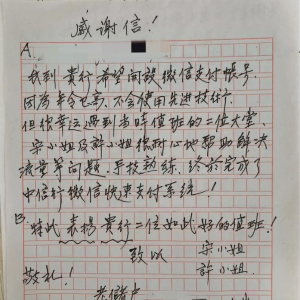 感谢信!
A.
我到 貴行 希望開啟 微信支付帳号.
因为 年令已高, 不会使用先进技術.
但很幸运遇到当時值班的二位大堂.
宋小姐及許小姐 很耐心地帮助解决
流量等问题. 手技熟练. 终於完成了
中信行微信快速支付系统!
B. 特此 表揚 貴行二位如此好的值班!
致以 宋小姐
敬礼! 許小姐.
老儲户